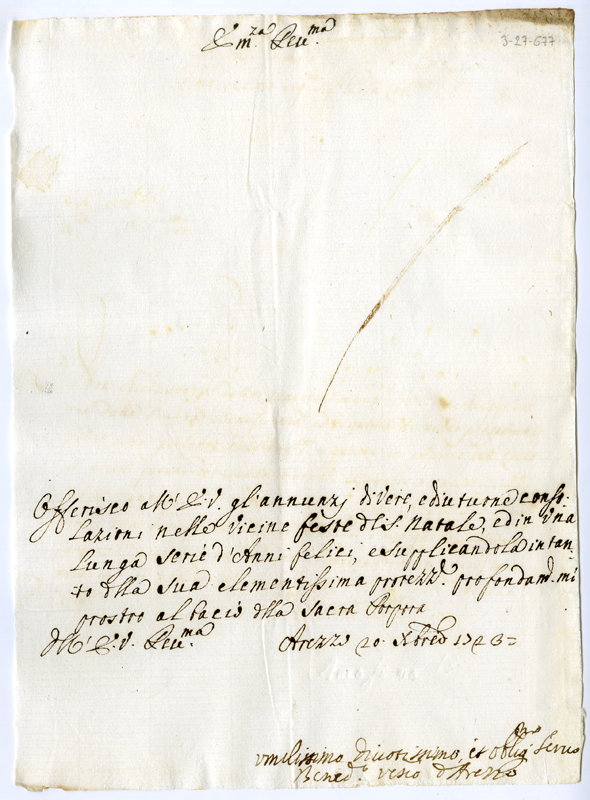 Em.za Reu.ma
3-27-677
Offerisco all' E.V. gl'annunzj di vere, e diuturne conso-
lazioni nelle vicine feste del S. Natale, ed in una
lunga serie d'Anni felici, e supplicandola intan-
to della sua clementissima protezz.e profondam.e mi
prostro al bacio della Sacra Porpora
Dell' E.V. Reu.ma
Arezzo 20 Xbre 1723=
Umilissimo Diuotissimo, et oblig.mo Seruo
Bened.o Vesco d'Arezzo